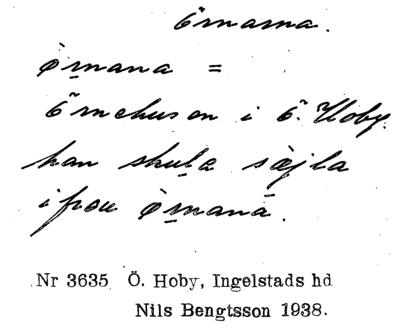 Örnarna.
ö̀m̱ana =
Örnehusen i Ö. Hoby.
han skuḻa sæ̀jla
i frou ö̀m̱ana.
Nr 3635 Ö. Hoby, Ingelstads hd
Nils Bengtsson 1938.